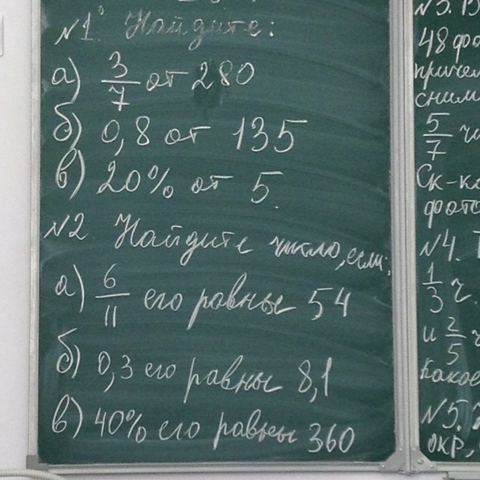 №1. Найдите:
а) 3/7 от 280
б) 0,8 от 135
в) 20% от 5.
№2 Найдите число, если:
а) 6/11 его равны 54
б) 0,3 его равны 8,1
в) 40% его равны 360
48 фо
причем
сним
5/7
Ск-к
фото
№4.
1/3 ч.
и 2/5 ч
Какое
№5.
окр,